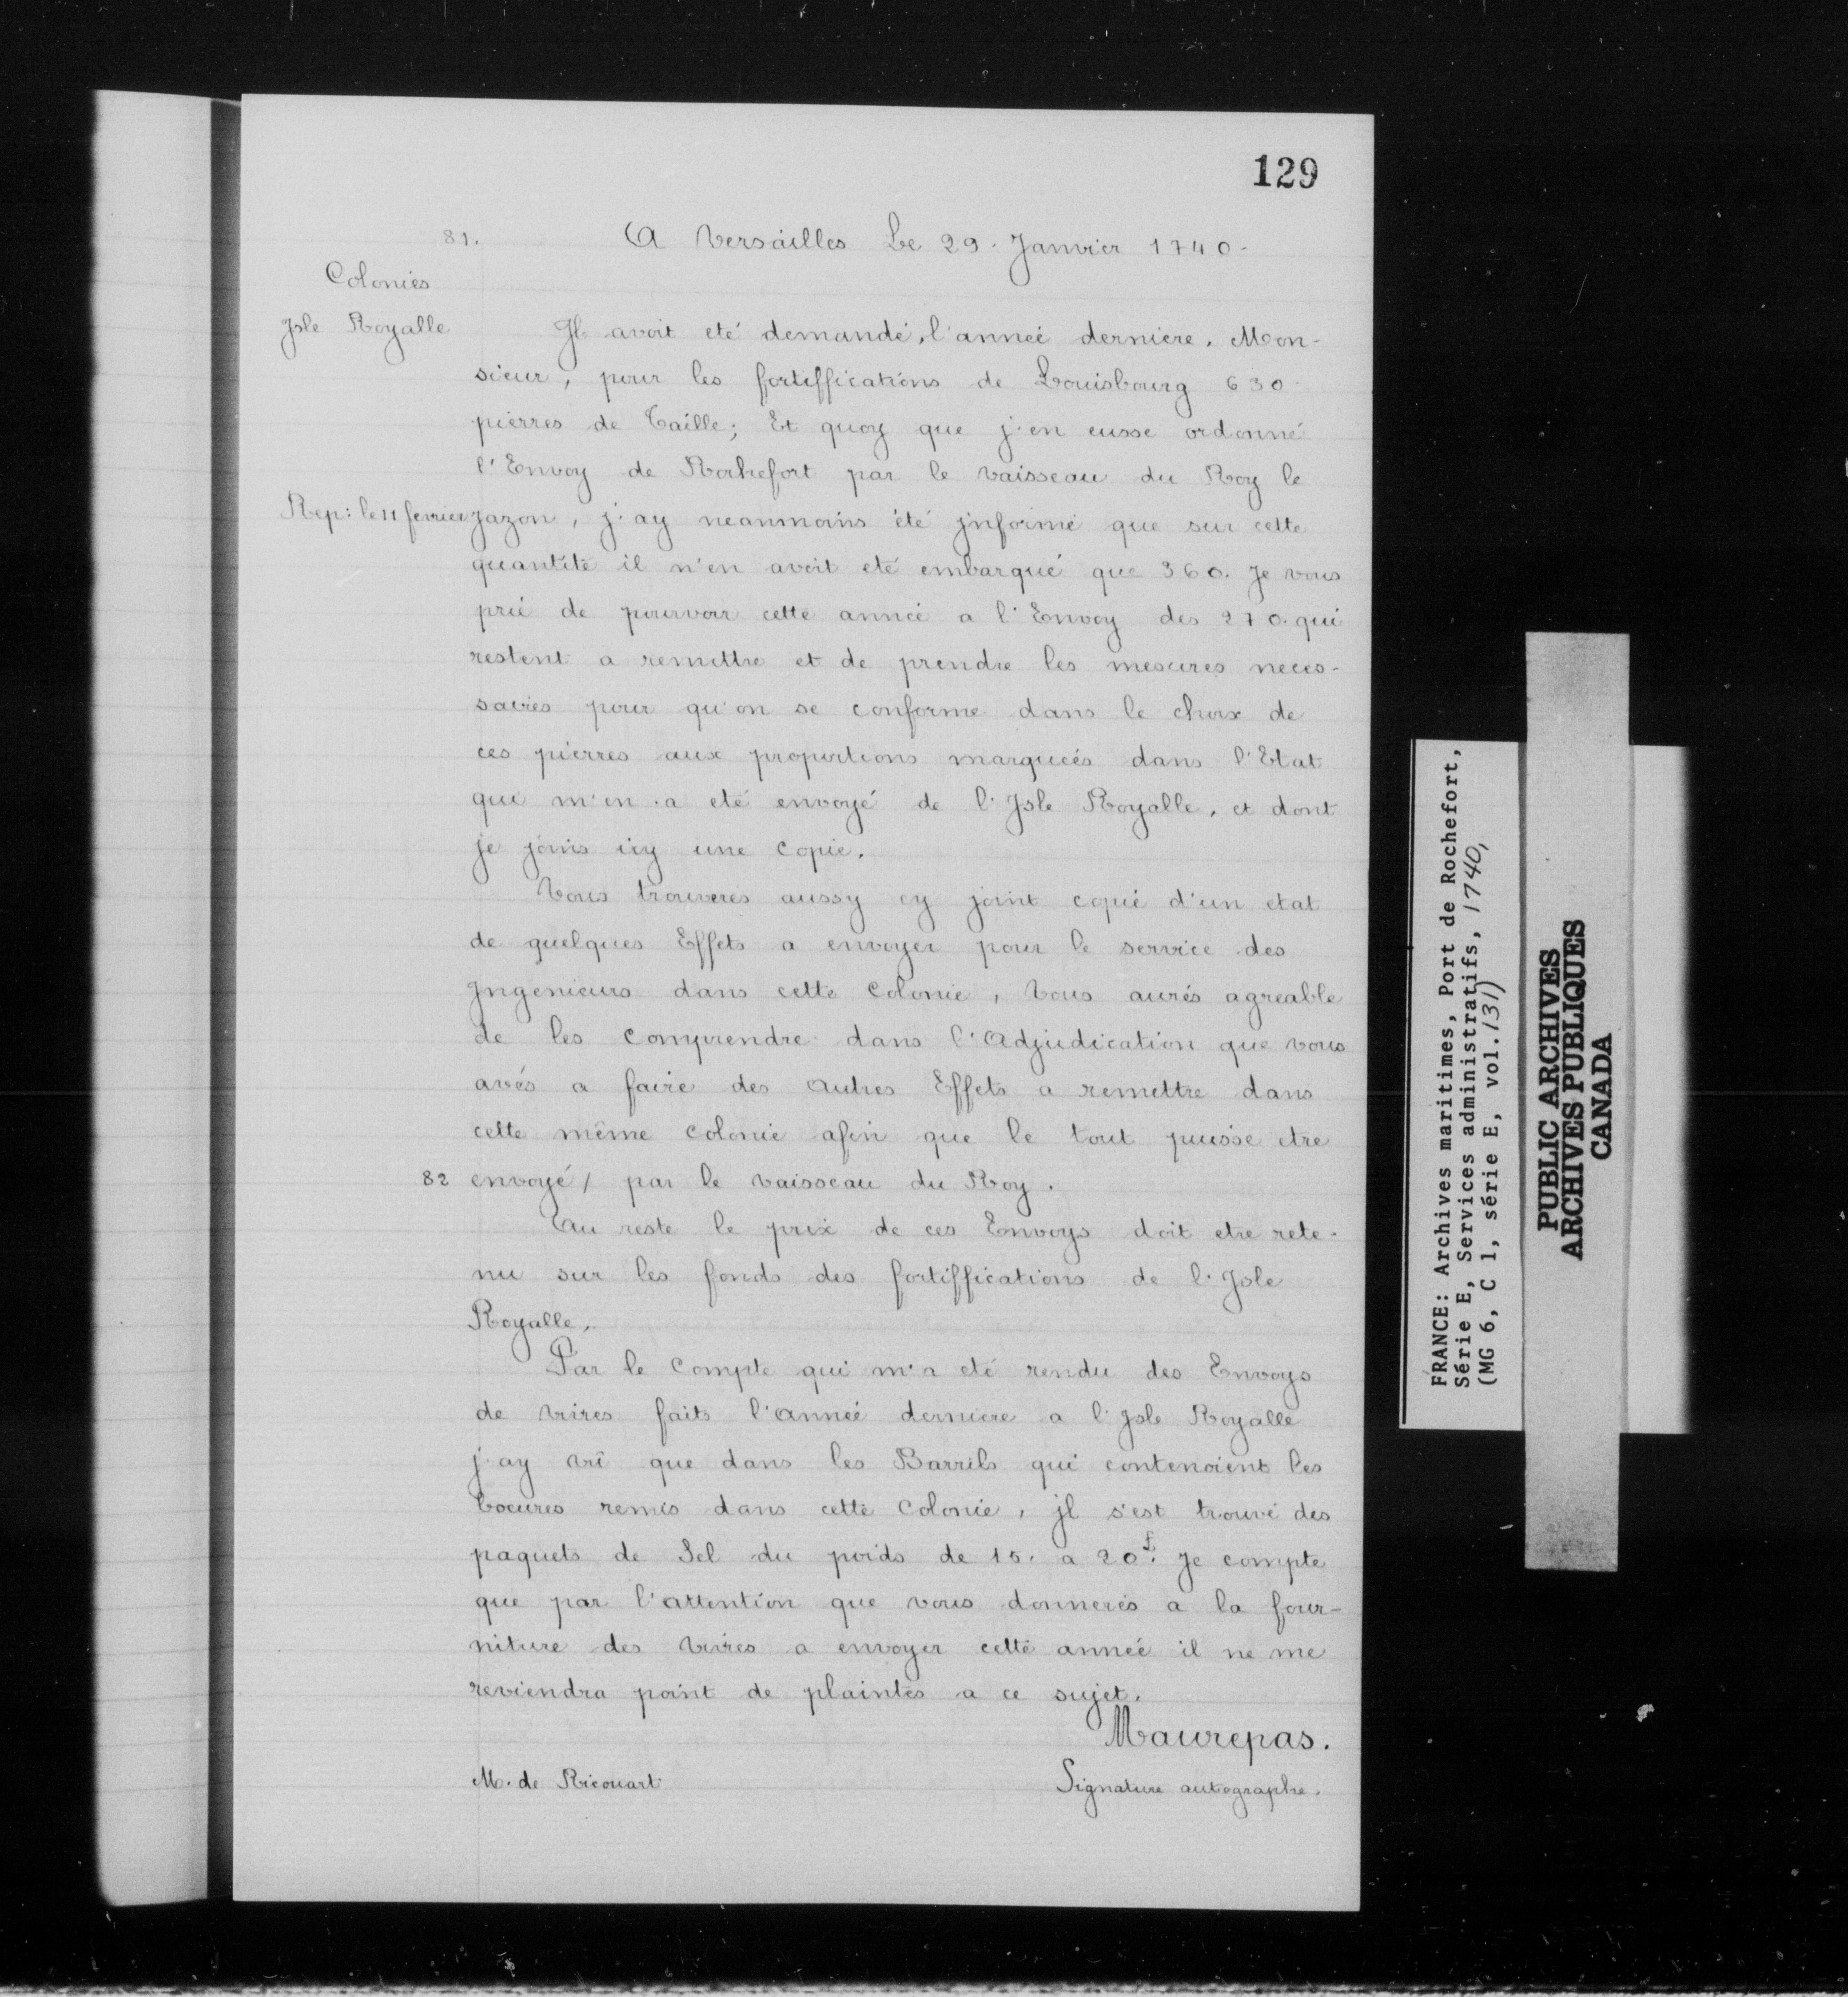 129
81.
A Versailles Le 29. Janvier 1740.
Colonies
Jsle Royalle
Jl avoit eté demandé, l'année derniere. Mon-
sieur, pour les fortiffications de Louisbourg 630
pierres de Taille; Et quoy que j'en eusse ordonné
l'Envoy de Rochefort par le vaisseau du Roy le
Rep: le 11 fevrier
Jazon, j'ay neanmoins été jnformé que sur cette
quantité il n'en avoit eté embarqué que 360. Je vous
prie de pourvoir cette année a l'Envoy des 270. qui
restent a remettre et de prendre les mesures neces-
saires pour qu'on se conforme dans le choix de
ces pierres aux proportions marquées dans l'Etat
qui m'en a eté envoyé de l'Jsle Royalle, et dont
je joins icy une Copie.
Vous trouveres aussy cy joint copie d'un etat
de quelques Effets a envoyer pour le service des
Jngenieurs dans cette Colonie, Vous aurés agreable
de les Comprendre dans l'Adjudication que vous
avés a faire des Autres Effets a remettre dans
cette même Colonie afin que le tout puisse etre
82
envoyé/ par le vaisseau du Roy.
Au reste le prix de ces Envoys doit etre rete-
nu sur les fonds des fortiffications de l'Jsle
Royalle.
Par le Compte qui m'a eté rendu des Envoys
de vivres faits l'année derniere a l'Jsle Royalle
j'ay vû que dans les Barrils qui contenoient les
boeures remis dans cette Colonie, jl s'est trouvé des
paquets de Sel du poids de 15. a 20£. Je compte
que par l'attention que vous donnerés a la four-
niture des vivres a envoyer cette année il ne me
reviendra point de plaintes a ce sujet.
Maurepas.
M. de Ricouart
Signature autographe.
FRANCE: Archives maritimes, Port de Rochefort,
Série E, Services administratifs, 1740,
(MG 6, C 1, série E, vol. 131)
PUBLIC ARCHIVES
ARCHIVES PUBLIQUES
CANADA